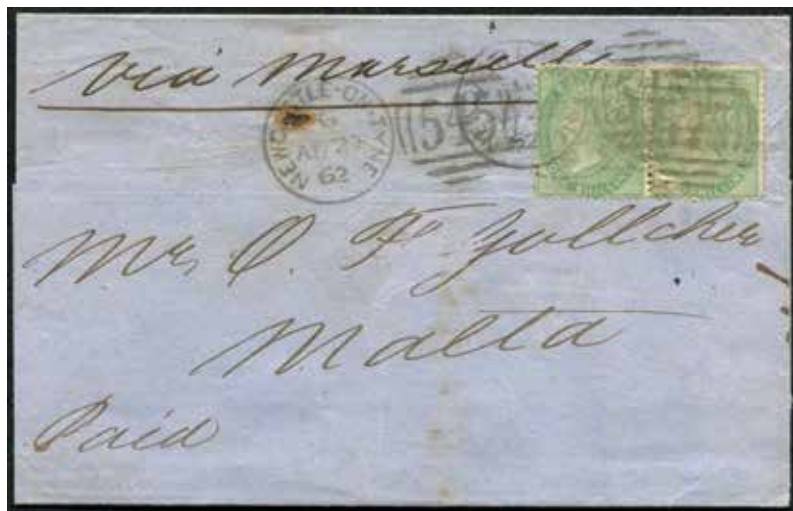 via Marseille
NEWCASTLE-ON-TYNE
62
545
Mr. O. F. Zollcher
Malta
Paid